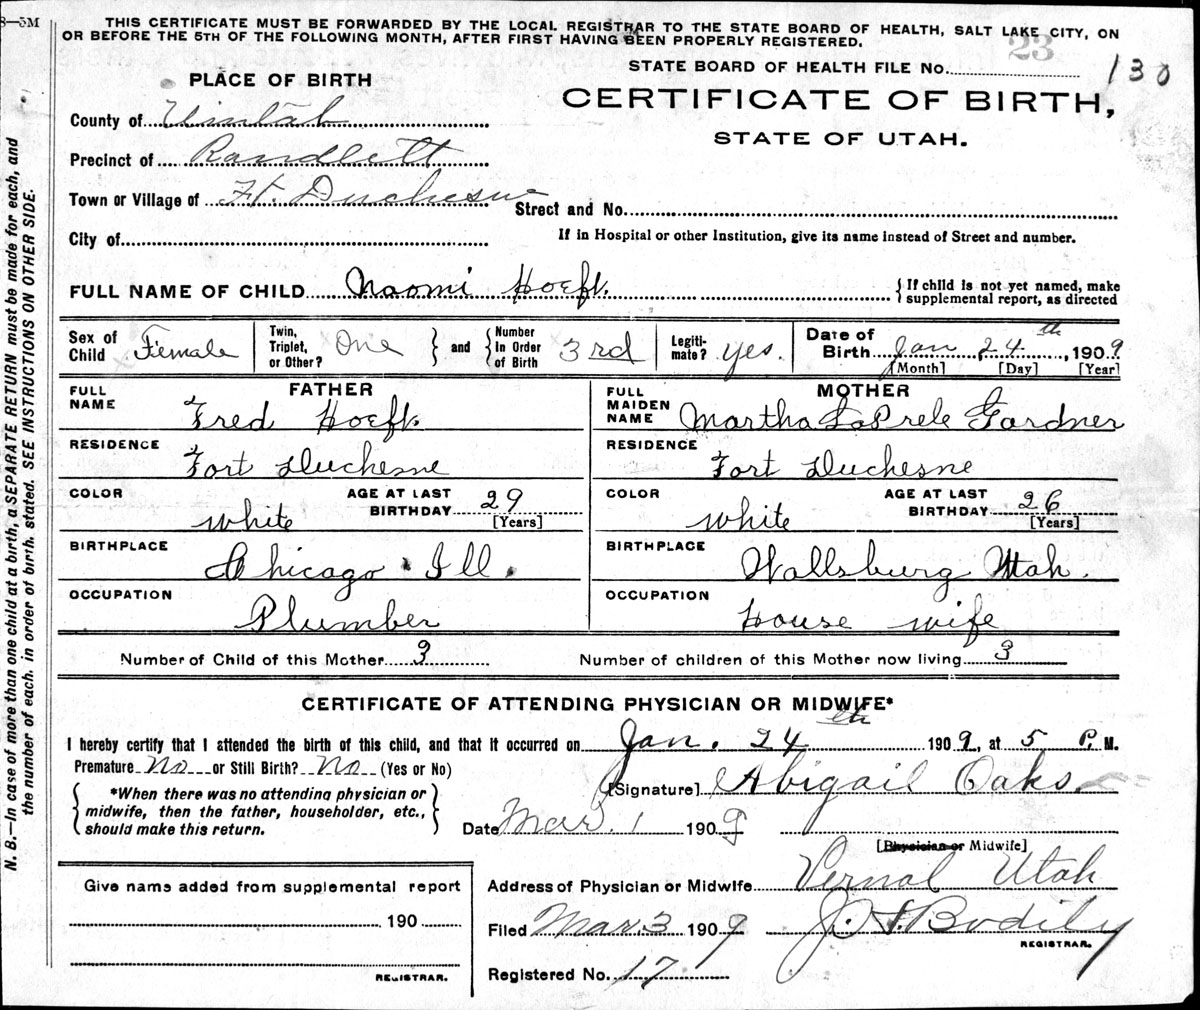 8—5M
THIS CERTIFICATE MUST BE FORWARDED BY THE LOCAL REGISTRAR TO THE STATE BOARD OF HEALTH, SALT LAKE CITY, ON
OR BEFORE THE 5TH OF THE FOLLOWING MONTH, AFTER FIRST HAVING BEEN PROPERLY REGISTERED.
23
STATE BOARD OF HEALTH FILE No. 130
PLACE OF BIRTH
CERTIFICATE OF BIRTH,
STATE OF UTAH.
County of Uintah
Precinct of Randlett
Town or Village of Ft. Duchesne
Street and No.
City of
If in Hospital or other Institution, give its name instead of Street and number.
FULL NAME OF CHILD Naomi Hoeft. { If child is not yet named, make
supplemental report, as directed
Sex of Child Female
Twin, Triplet, or Other? One } and { Number in Order of Birth 3rd
Legiti-mate? yes.
Date of Birth Jan 24th, 1909
[Month] [Day] [Year]
FATHER
FULL NAME Fred Hoeft.
RESIDENCE Fort Duchesne
COLOR white
AGE AT LAST BIRTHDAY 29
[Years]
BIRTHPLACE Chicago Ill.
OCCUPATION Plumber
MOTHER
FULL MAIDEN NAME Martha LaPrele Gardner
RESIDENCE Fort Duchesne
COLOR white
AGE AT LAST BIRTHDAY 26
[Years]
BIRTHPLACE Wallsburg Utah.
OCCUPATION House wife
Number of Child of this Mother 3
Number of children of this Mother now living 3
CERTIFICATE OF ATTENDING PHYSICIAN OR MIDWIFE*
I hereby certify that I attended the birth of this child, and that it occurred on Jan. 24th 1909, at 5 P. M.
Premature No or Still Birth? No (Yes or No)
[Signature] Abigail Oaks.
{ *When there was no attending physician or
midwife, then the father, householder, etc.,
should make this return. }
Date Mar. 1 1909
[Physician or Midwife]
Give name added from supplemental report
190
REGISTRAR.
Address of Physician or Midwife Vernal Utah
Filed Mar. 3 1909 J. S. Bodily
REGISTRAR.
Registered No. 17
N. B.—In case of more than one child at a birth, a SEPARATE RETURN must be made for each, and
the number of each, in order of birth, stated. SEE INSTRUCTIONS ON OTHER SIDE.